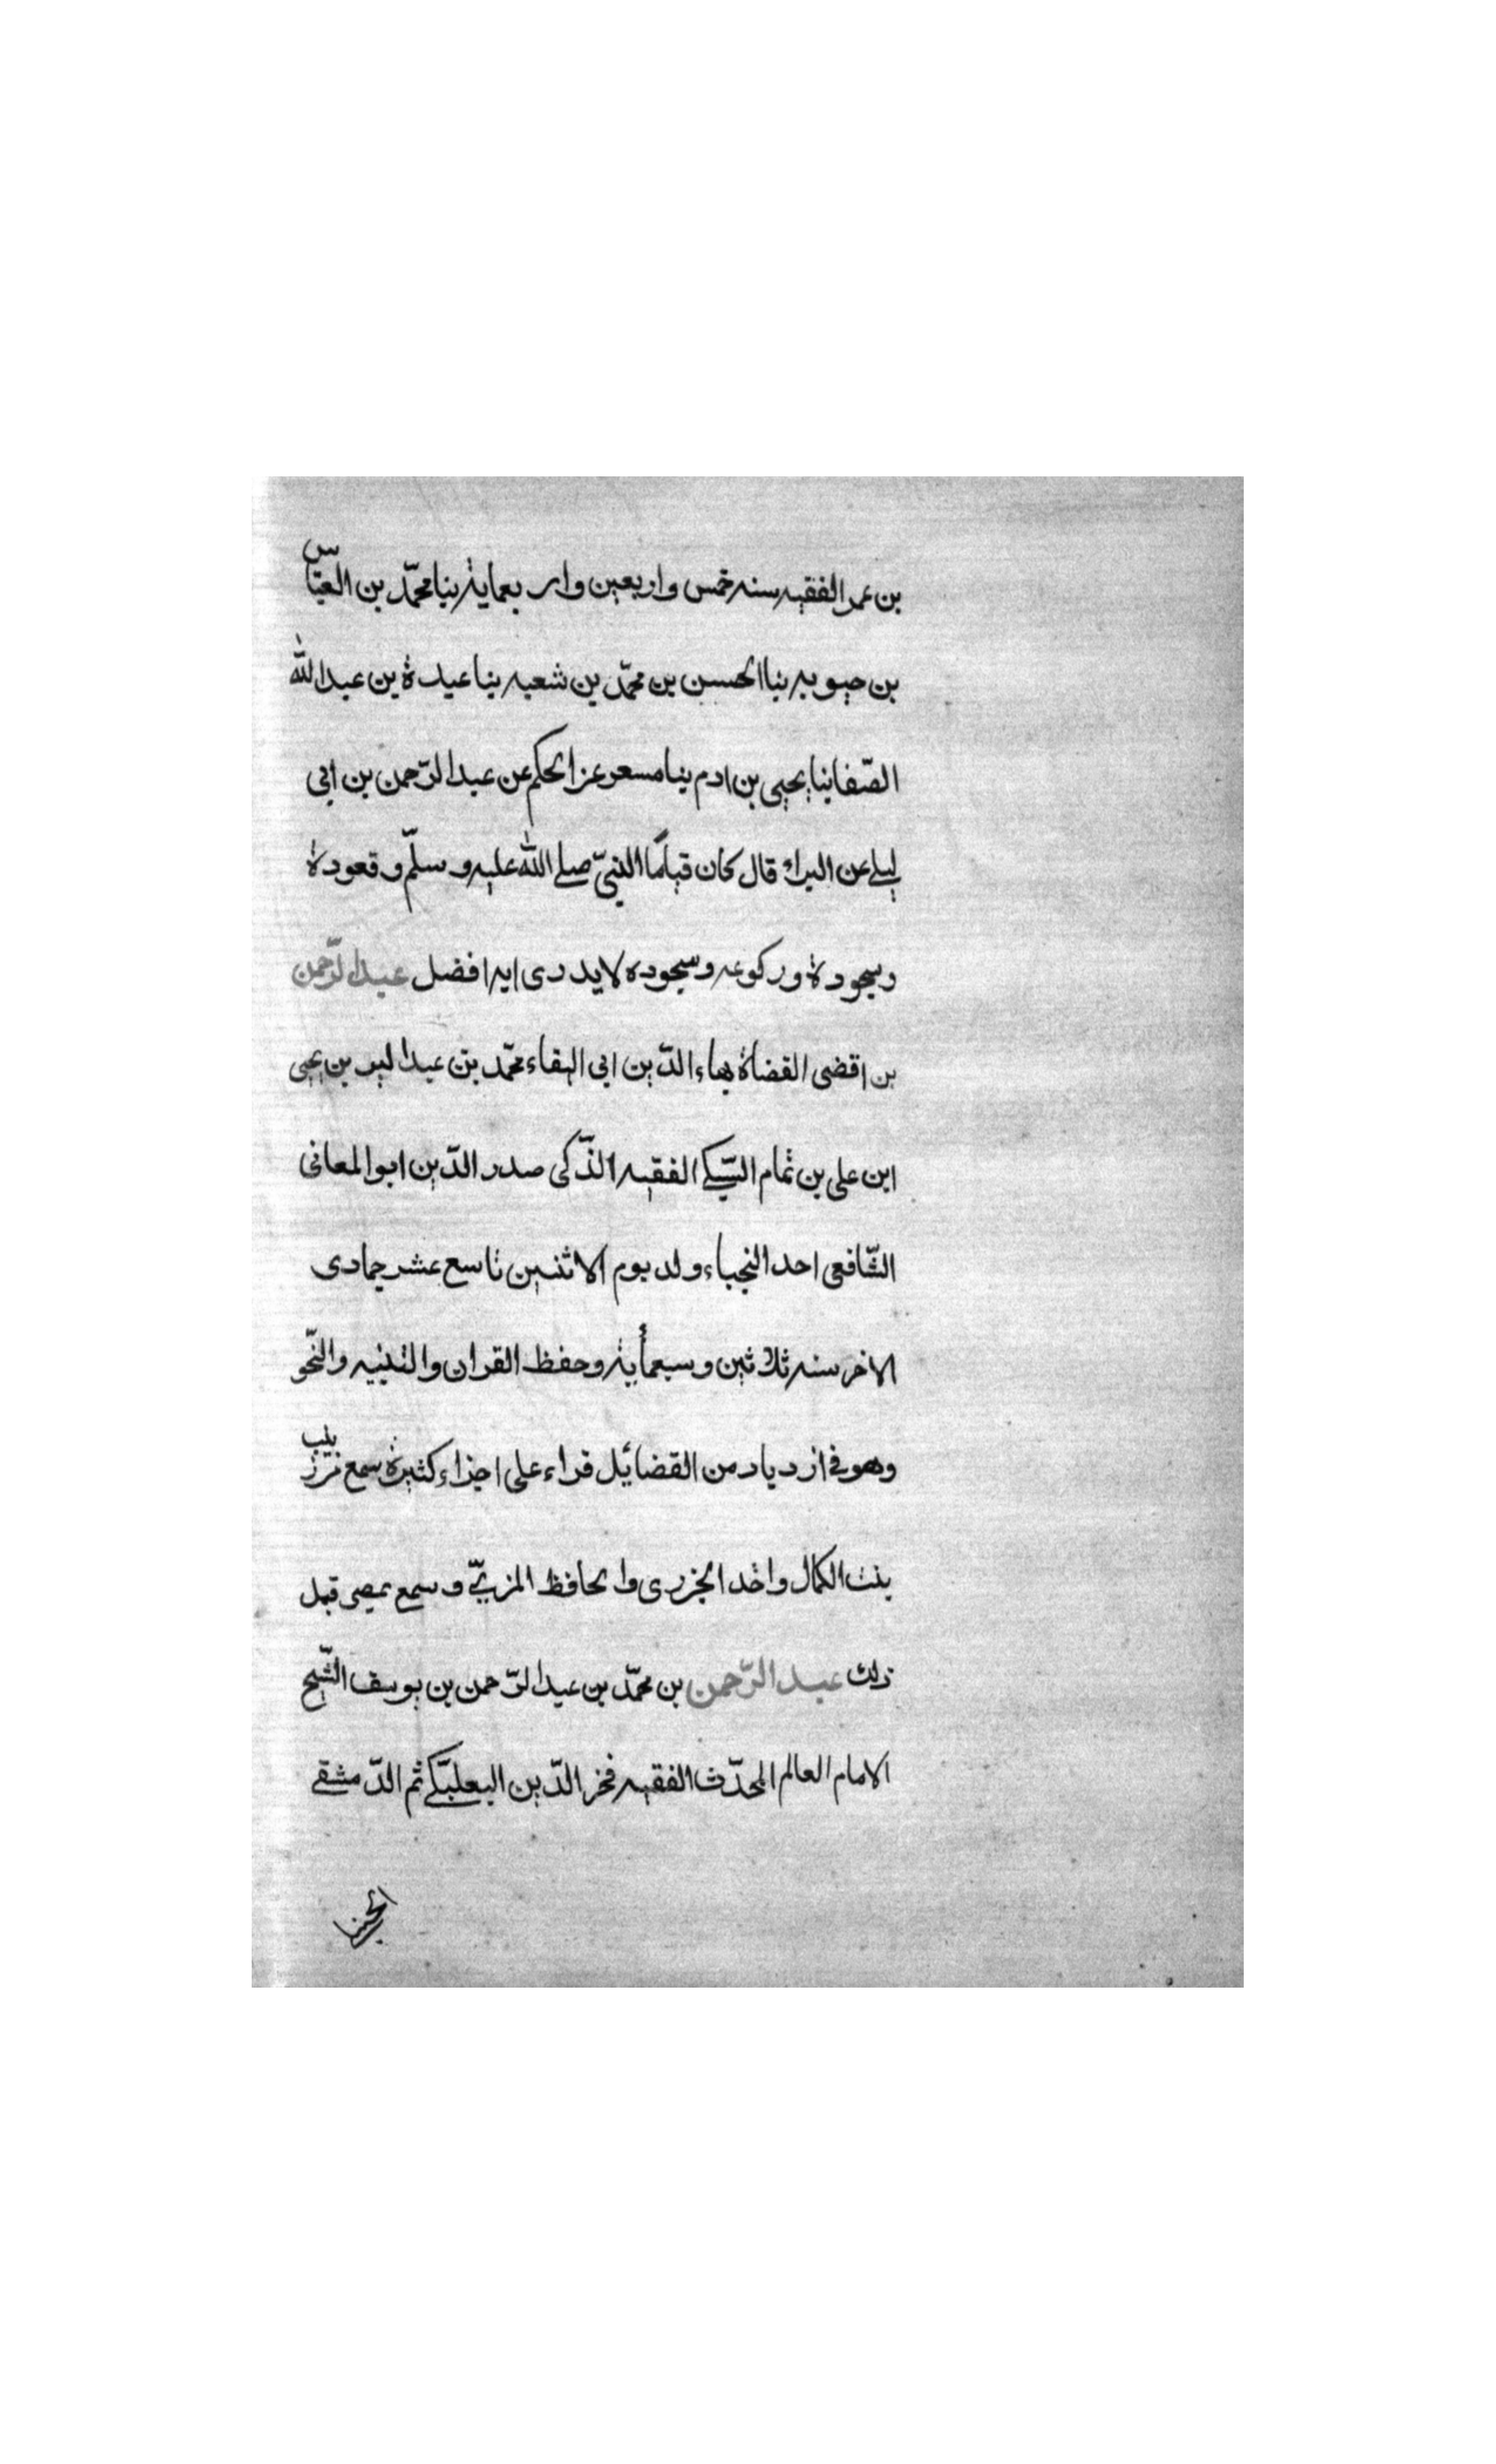 بن عمر الفقيه سنه خمس واربعين وار بعماية بنا محمّد بن العبّاس
بن حيويه بنا الحسين بن محمّد بن شعبه بنا عبدة بن عبد الله
الصّفا بنا يحيى بن ادم بنا مسعر عن الحكم عن عبد الرّحمن بن ابى
ليلى عن البراء قال كان قيامًا النبىّ صلى الله عليه وسلّم وقعودة
وسجودة وركوعه وسجوده لايدرى ايه افضل عبد الرّحمن
بن اقضى القضاة بهاء الدّين ابى البقاء محمّد بن عبد البر بن يحيى
ابن على بن تمام السّبكى الفقيه الذّكى صدر الدّين ابوالمعانى
الشّافعى احد النجباء ولد يوم الاثنين تاسع عشر جمادى
الاخر سنه ثلاثين وسبعمأية وحفظ القران والتنبيه والنّحو
وهو فى ازدياد من القضائل قراء على اجزاء كثيرة سمع من زينب
بنت الكمال واخد الجزرى والحافظ المزىّ وسمع بمصر قبل
ذلك عبد الرّحمن بن محمّد بن عبد الرّحمن بن يوسف الشّيخ
الامام العالم المحدّث الفقيه فخر الدّين البعلبّكى ثم الدّمشقى